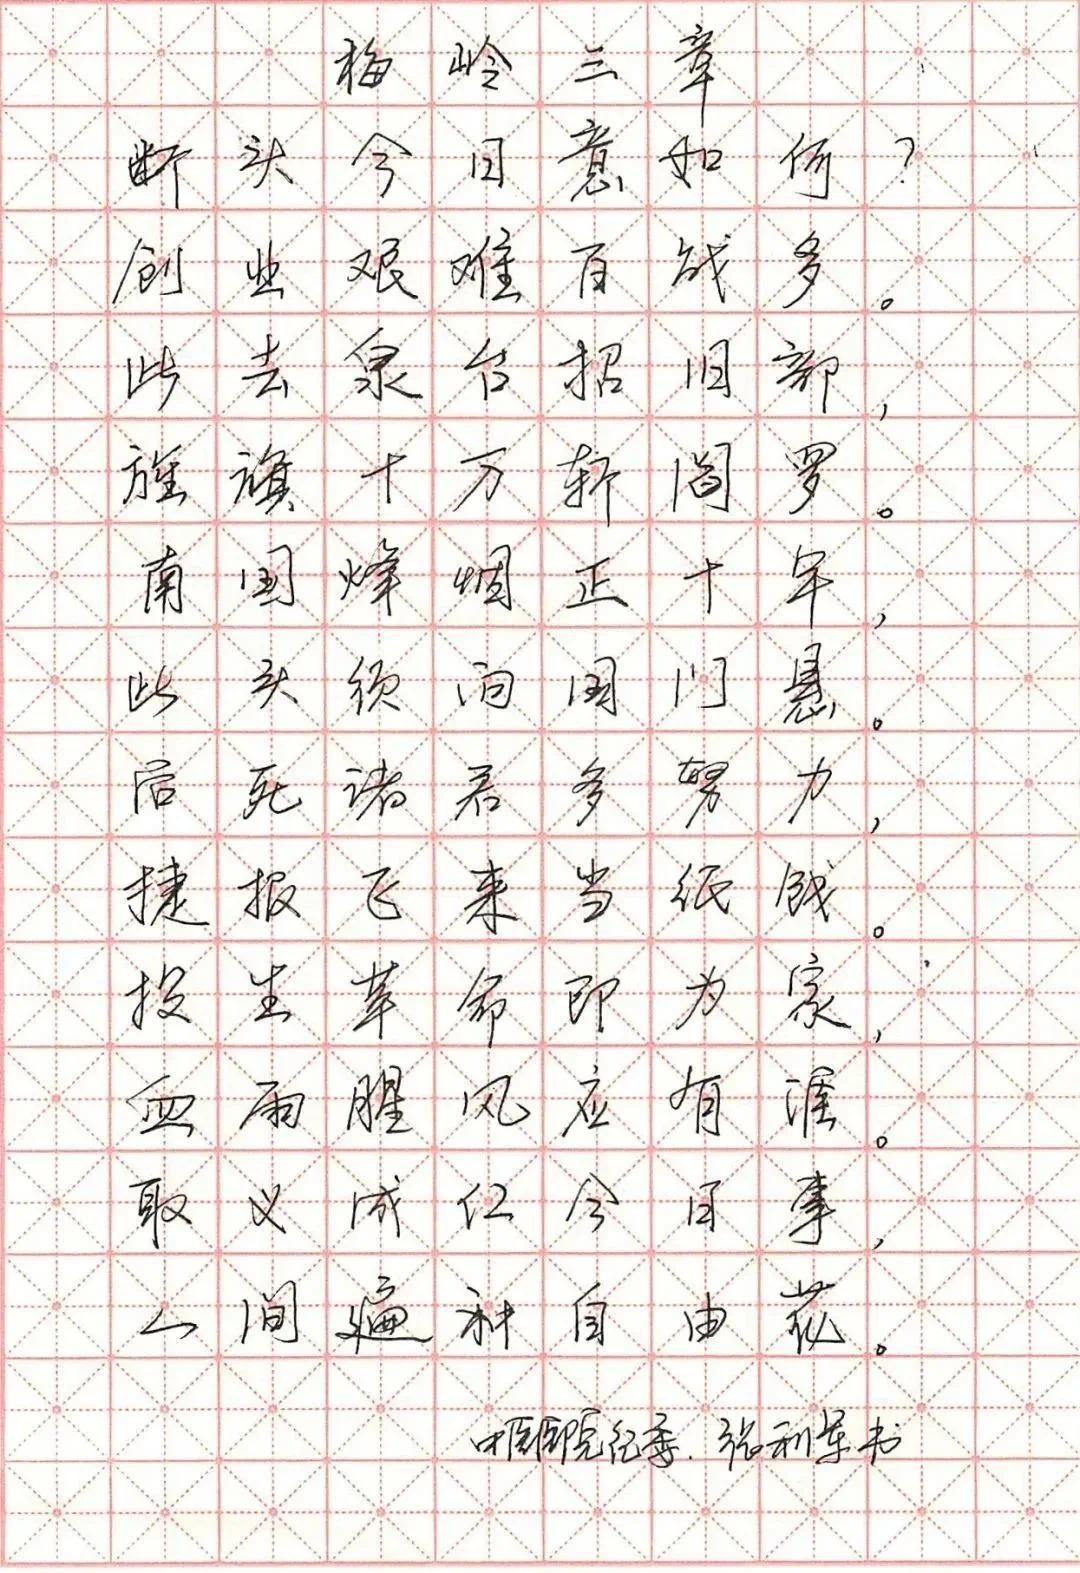 梅岭三章
断头今日意如何？
创业艰难百战多。
此去泉台招旧部，
旌旗十万斩阎罗。
南国烽烟正十年，
此头须向国门悬。
后死诸君多努力，
捷报飞来当纸钱。
投生革命即为家，
血雨腥风应有涯。
取义成仁今日事，
人间遍种自由花。
中医医院纪委.张利军书